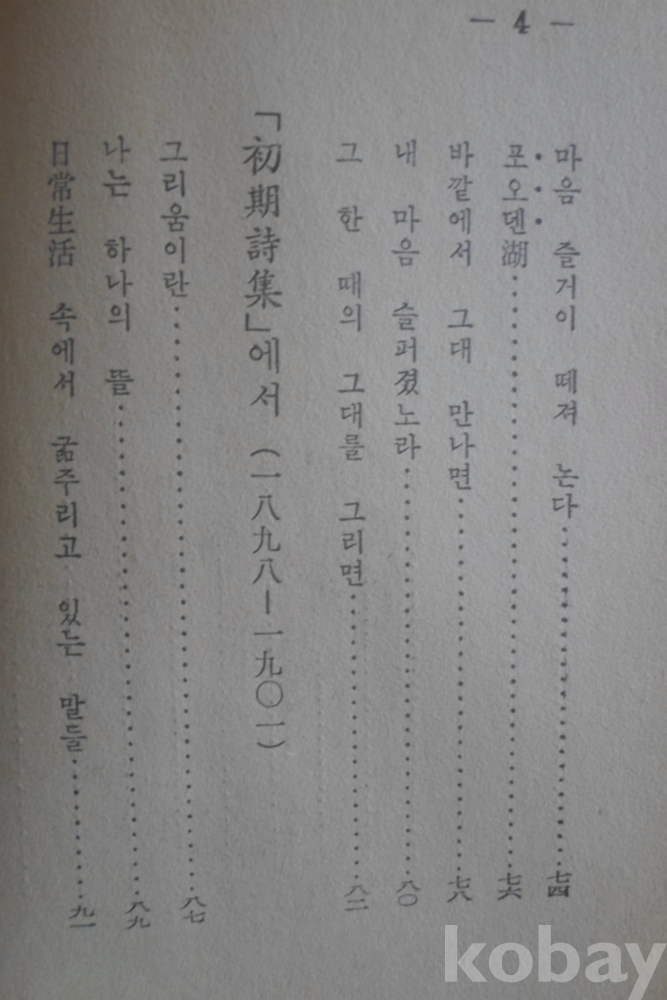 — 4 —
마음 즐거이 떼져 논다……七四
포오덴湖……七六
바깥에서 그대 만나면……七八
내 마음 슬퍼졌노라……八〇
그 한 때의 그대를 그리면……八二
「初期詩集」에서 (一八九八—一九〇一)
그리움이란……八七
나는 하나의 뜰……八九
日常生活 속에서 굶주리고 있는 말들……九一
kobay